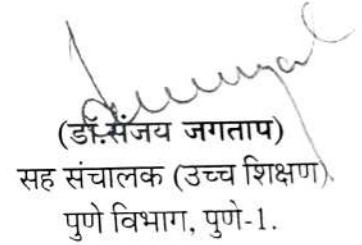 (डॉ.संजय जगताप)
सह संचालक (उच्च शिक्षण)
पुणे विभाग, पुणे-1.